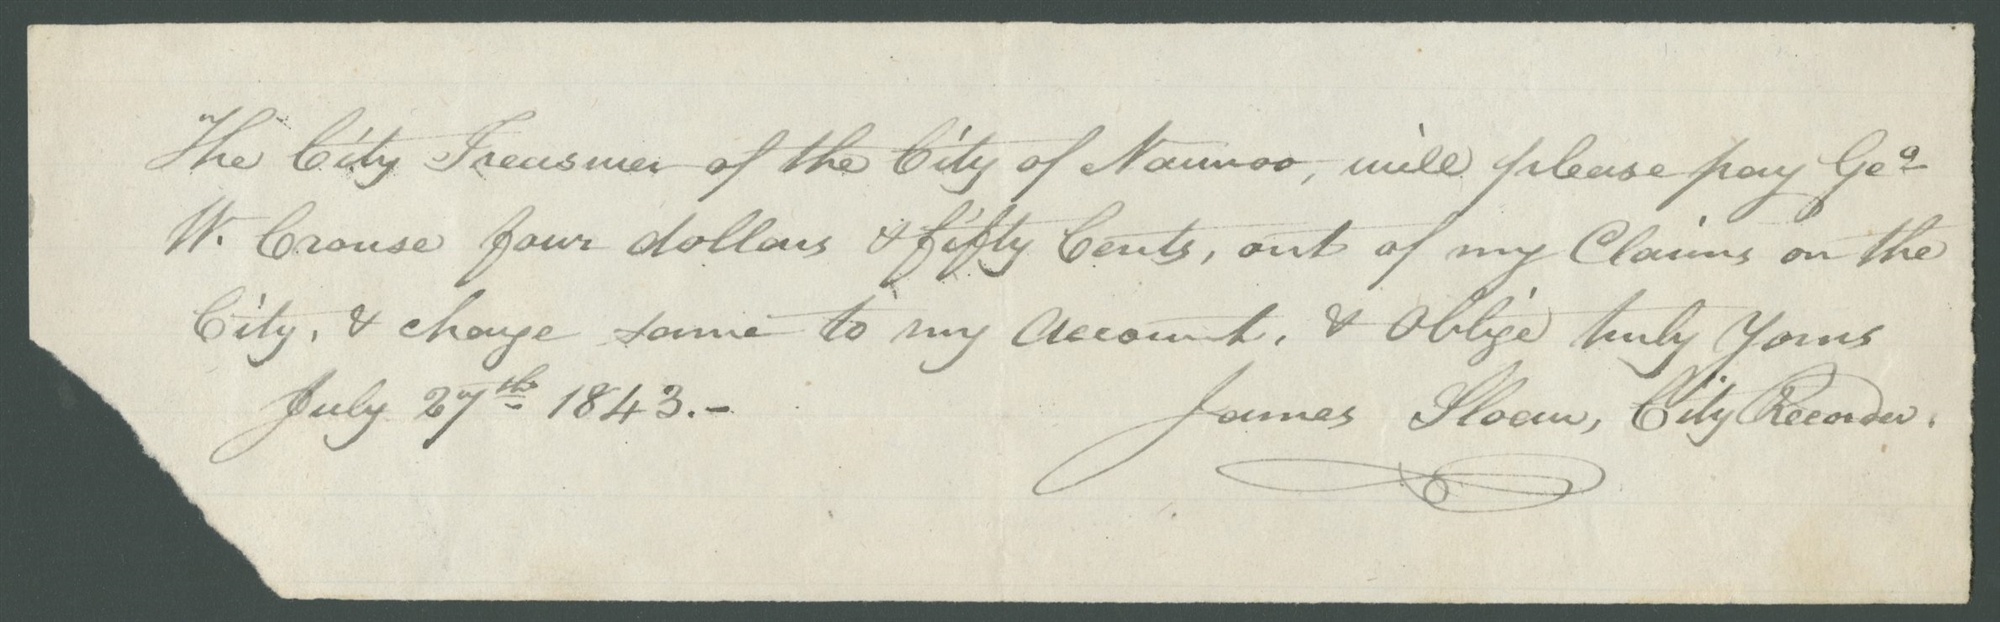 The City Treasurer of the City of Nauvoo, will please pay Geo
W. Crouse four dollars & fifty Cents, out of my Claims on the
City, & charge same to my account, & oblige truly yours
July 27th 1843.-
James Sloan, City Recorder.